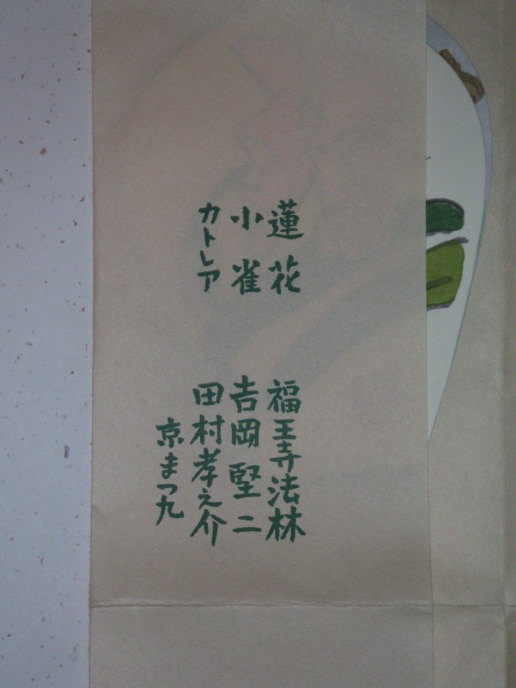 蓮花 福王寺法林
小雀 吉岡堅二
カトレア 田村孝之介
京まつ九